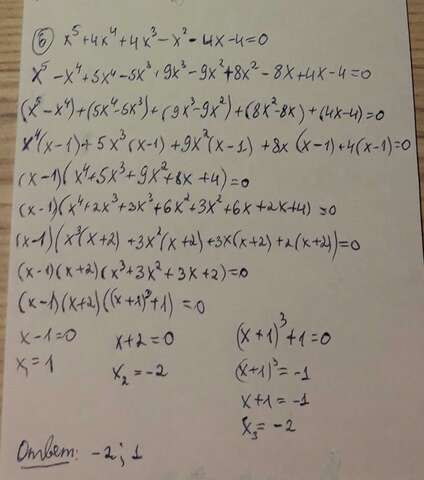 б) x⁵+4x⁴+4x³-x²-4x-4=0
x⁵-x⁴+5x⁴-5x³+9x³-9x²+8x²-8x+4x-4=0
(x⁵-x⁴)+(5x⁴-5x³)+(9x³-9x²)+(8x²-8x)+(4x-4)=0
x⁴(x-1)+5x³(x-1)+9x²(x-1)+8x(x-1)+4(x-1)=0
(x-1)(x⁴+5x³+9x²+8x+4)=0
(x-1)(x⁴+2x³+3x³+6x²+3x²+6x+2x+4)=0
(x-1)(x³(x+2)+3x²(x+2)+3x(x+2)+2(x+2))=0
(x-1)(x+2)(x³+3x²+3x+2)=0
(x-1)(x+2)((x+1)³+1)=0
x-1=0 x+2=0 (x+1)³+1=0
x₁=1 x₂=-2 (x+1)³=-1
x+1=-1
x₃=-2
Ответ: -2; 1